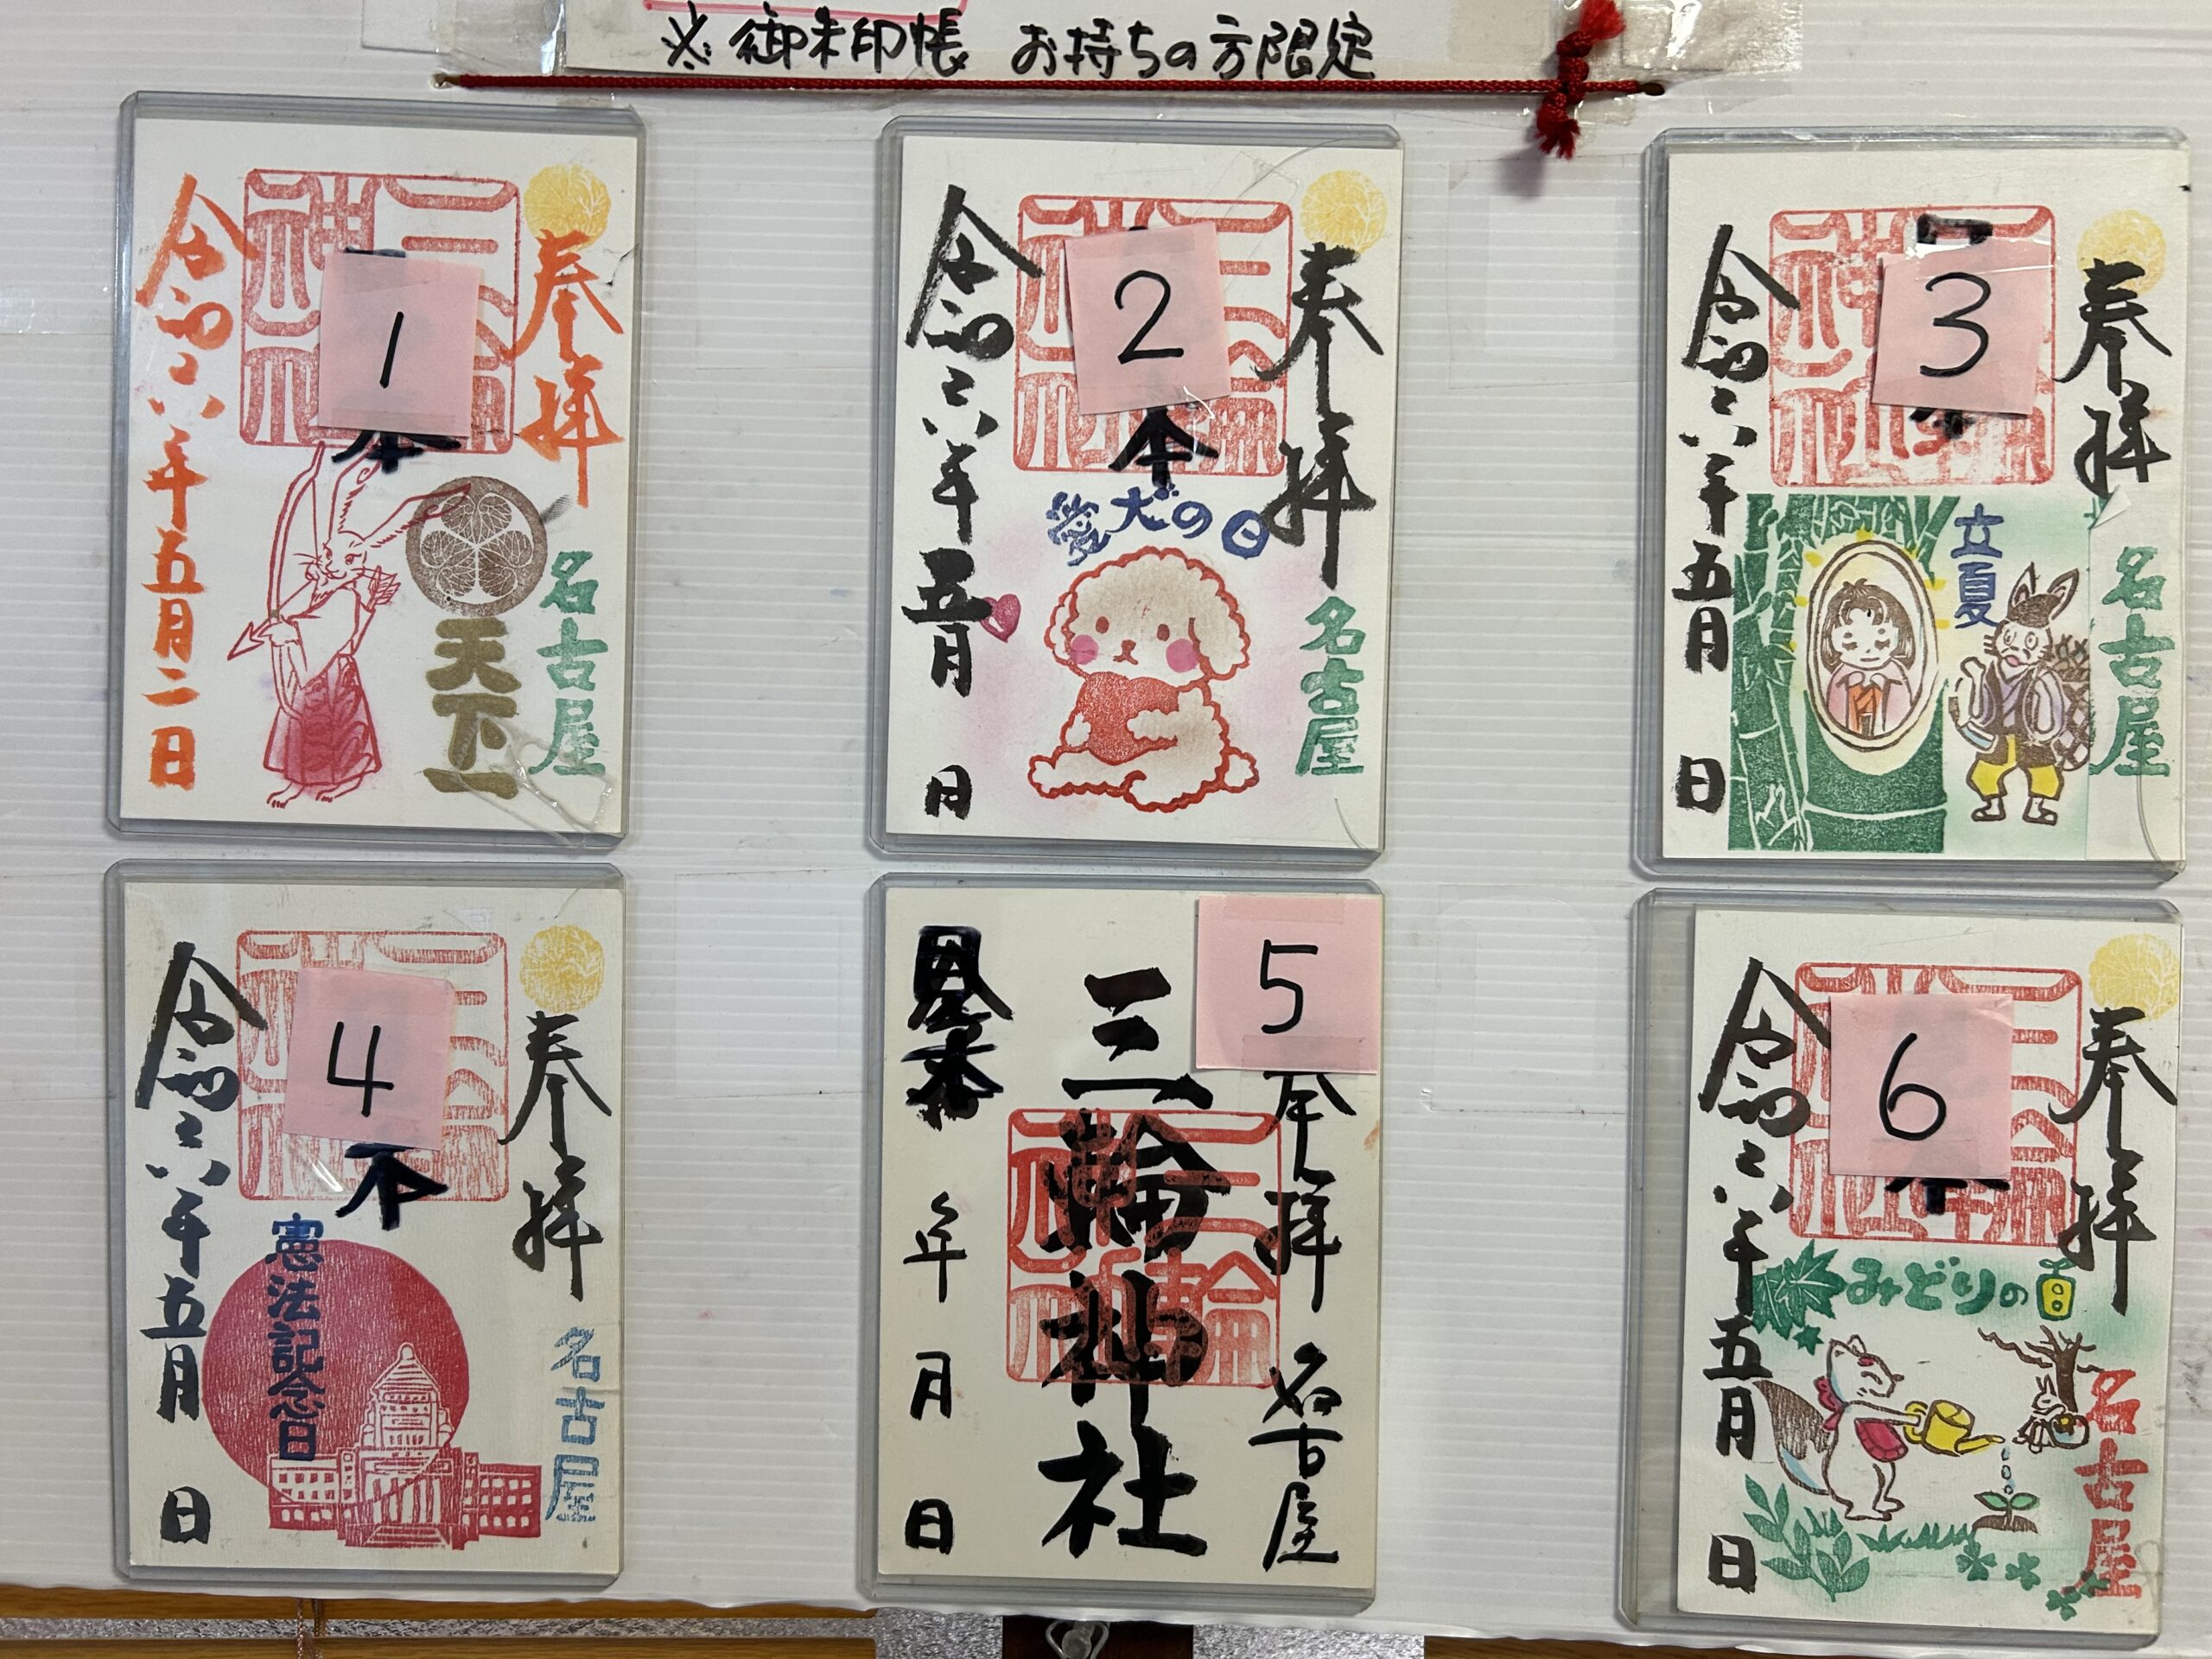 ※御朱印帳 お持ちの方限定
奉拝
1
令和六年五月二日
天下一
名古屋
奉拝
2
令和六年五月 日
愛犬の日
名古屋
奉拝
3
令和六年五月 日
立夏
名古屋
奉拝
4
令和六年五月 日
憲法記念日
名古屋
5
奉拝 名古屋
三輪神社
年 月 日
奉拝
6
令和六年五月 日
みどりの日
名古屋